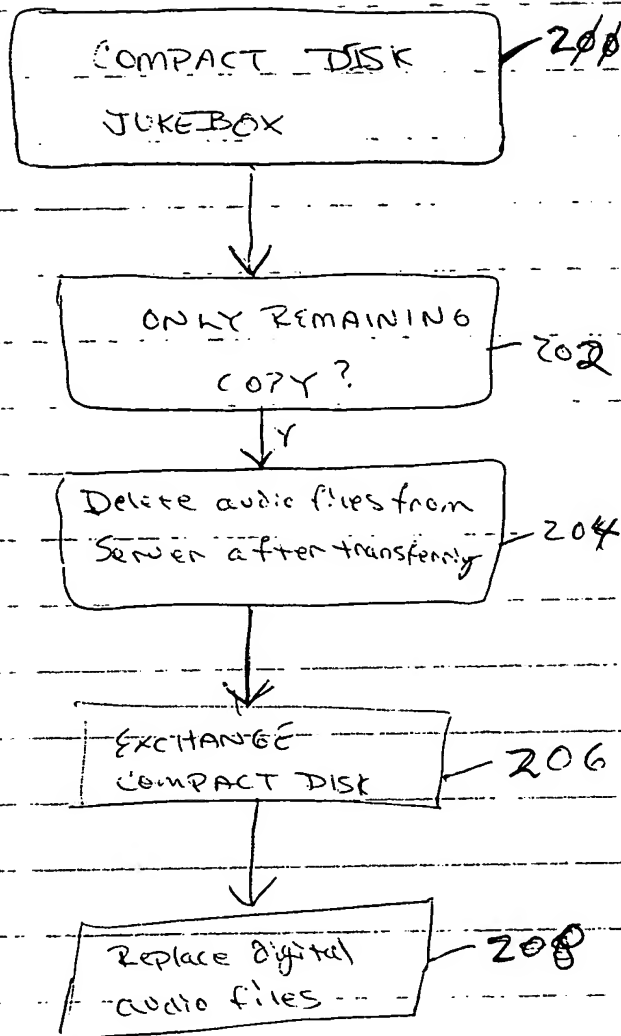 COMPACT DISK
JUKEBOX
200
ONLY REMAINING
COPY?
202
Y
Delete audio files from
Server after transferring
204
EXCHANGE
COMPACT DISK
206
Replace digital
audio files
208